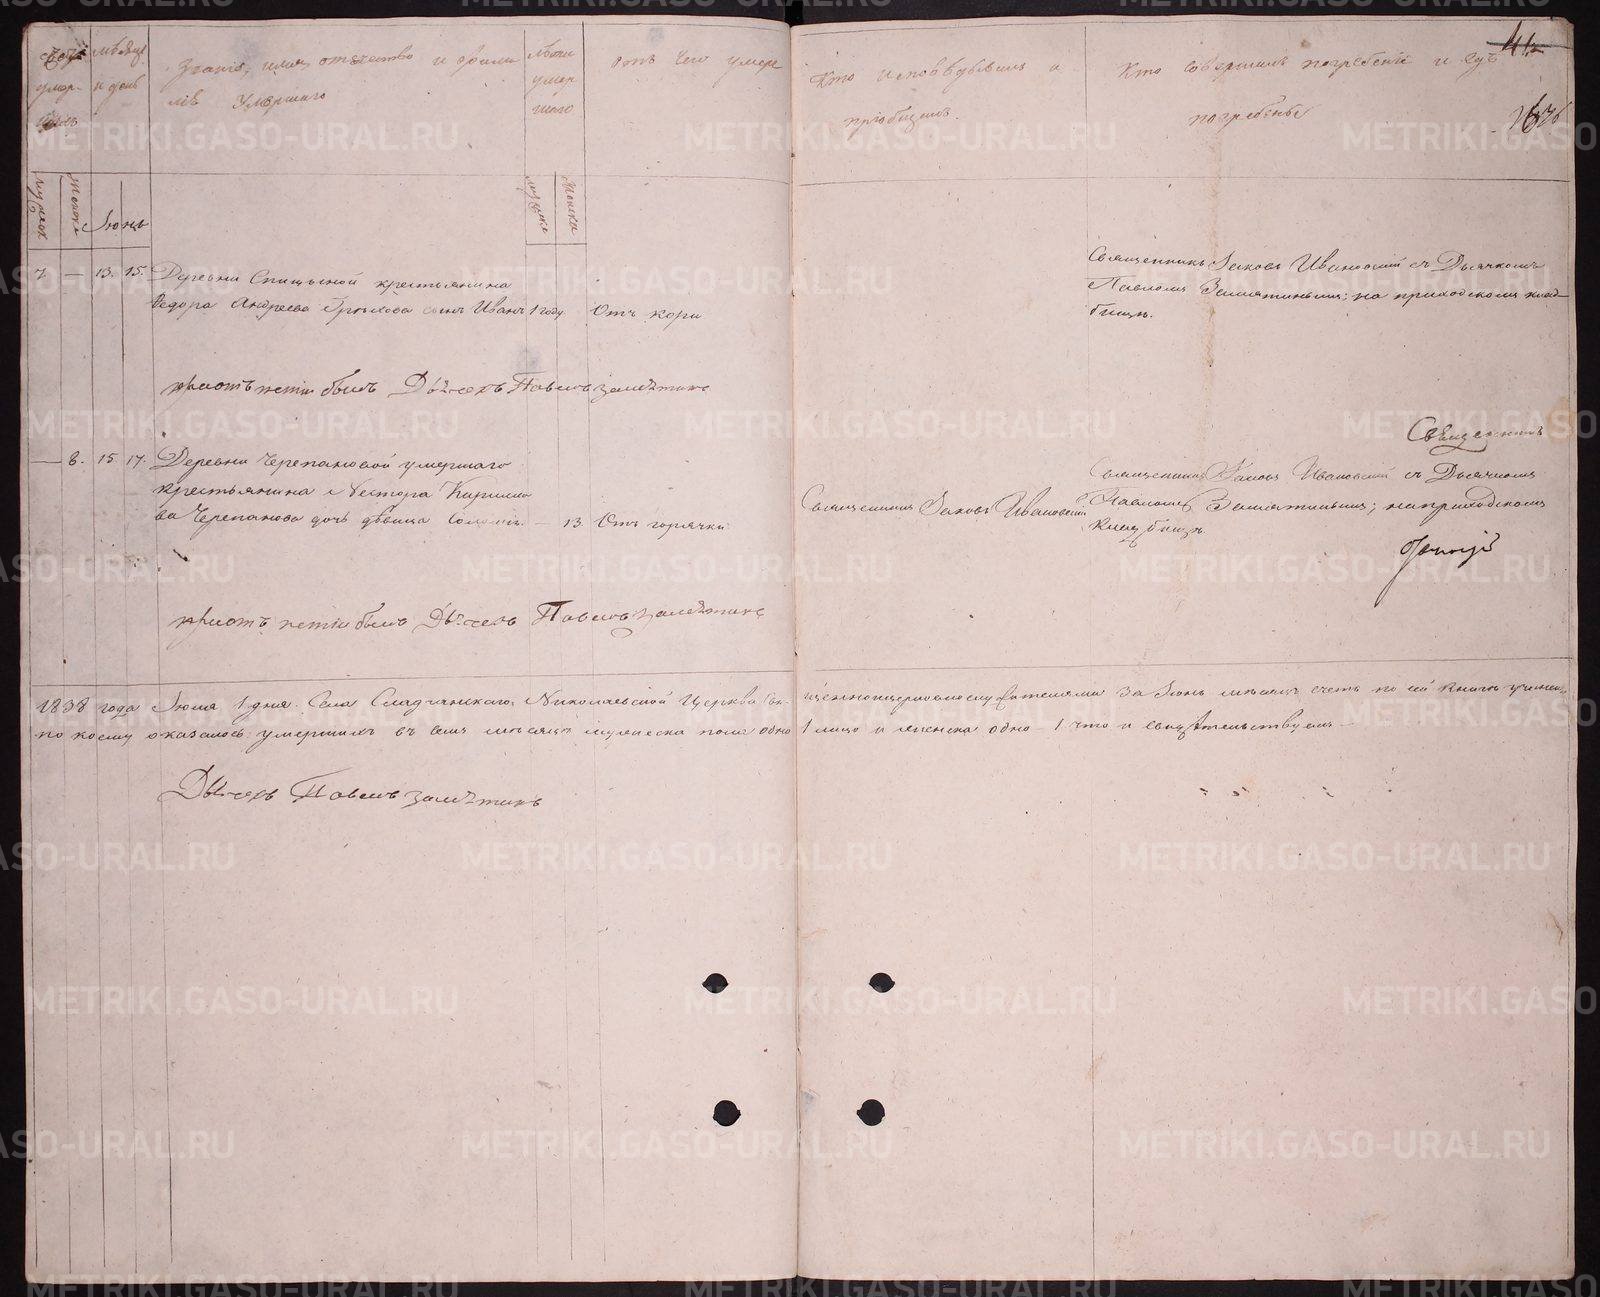 Счетъ умер- шихъ
мѣсяцъ и день
Званіе, имя, отчество и фами
лія Умершаго
лѣта умер шаго
отъ чего умеръ
Кто исповѣдывалъ и
пріобщалъ.
Кто совершалъ погребеніе и гдѣ
погребены
мужеска
женска
Іюнь
мужеска
женска
7. — 13. 15. Деревни Спицыной крестьянина
Ѳедора Андреева сынъ Иванъ 1 году Отъ кори
Священникъ Іаковъ Ивановскій съ Дьячкомъ
Павломъ Замятинымъ; на приходскомъ клад-
бищѣ.
при отпетіи былъ Дьячекъ Павелъ Замятинъ
Священникъ
— 8. 15. 17. Деревни Черепановой умершаго
крестьянина Нестора Кирилло
ва Черепанова дочь дѣвица — 13 Отъ горячки
Священникъ Іаковъ Ивановскій
Священникъ Іаковъ Ивановскій съ Дьячкомъ
Павломъ Замятинымъ; на приходскомъ
Кладбищѣ.
при отпетіи былъ Дьячекъ Павелъ Замятинъ
1838 года Іюля 1 дня. Села Сладчанскаго Николаевской Церкви Свя- щенноцерковнослужителями за Іюнь мѣсяцъ счетъ по сей книгѣ учинен,
по коему оказалось: умершихъ въ семъ мѣсяцѣ мужеска пола одно 1 лицо и женска одно — 1 что и свидѣтельствуемъ —
Дьячекъ Павелъ Замятинъ
METRIKI.GASO-URAL.RU